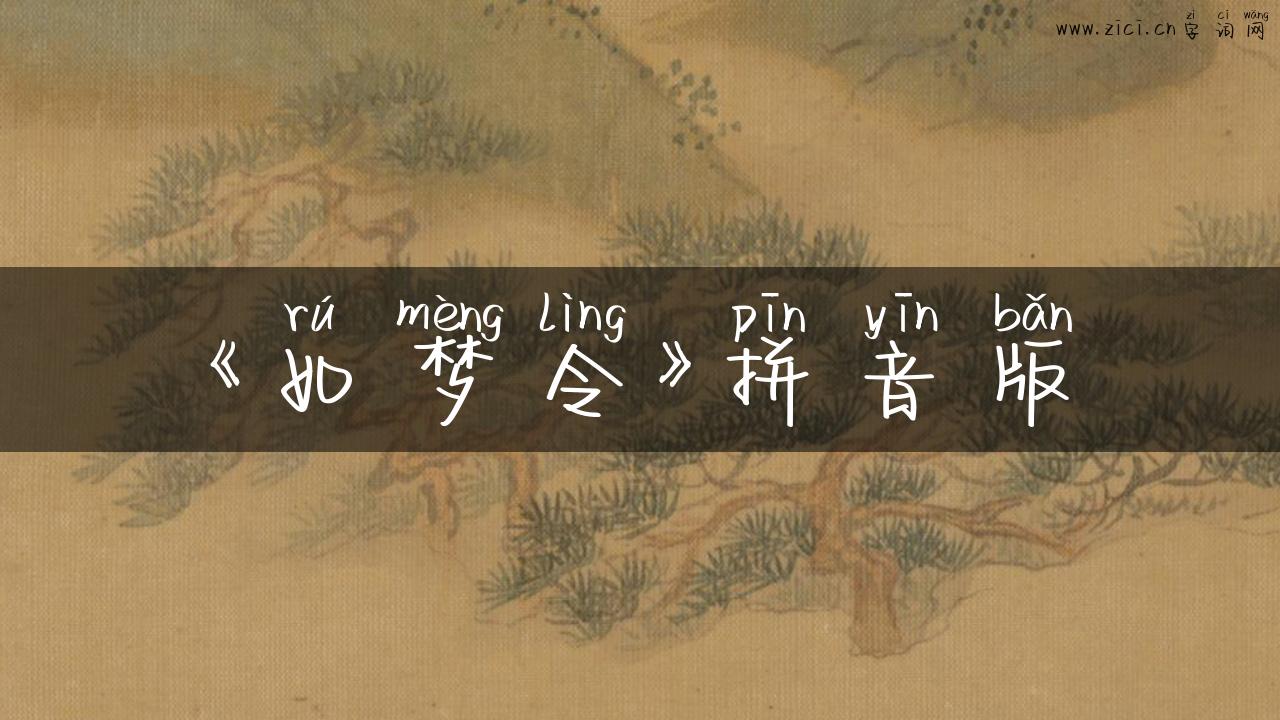 zì cí wǎng
www.zici.cn 字词网
rú mèng lìng pīn yīn bǎn
《如梦令》拼音版